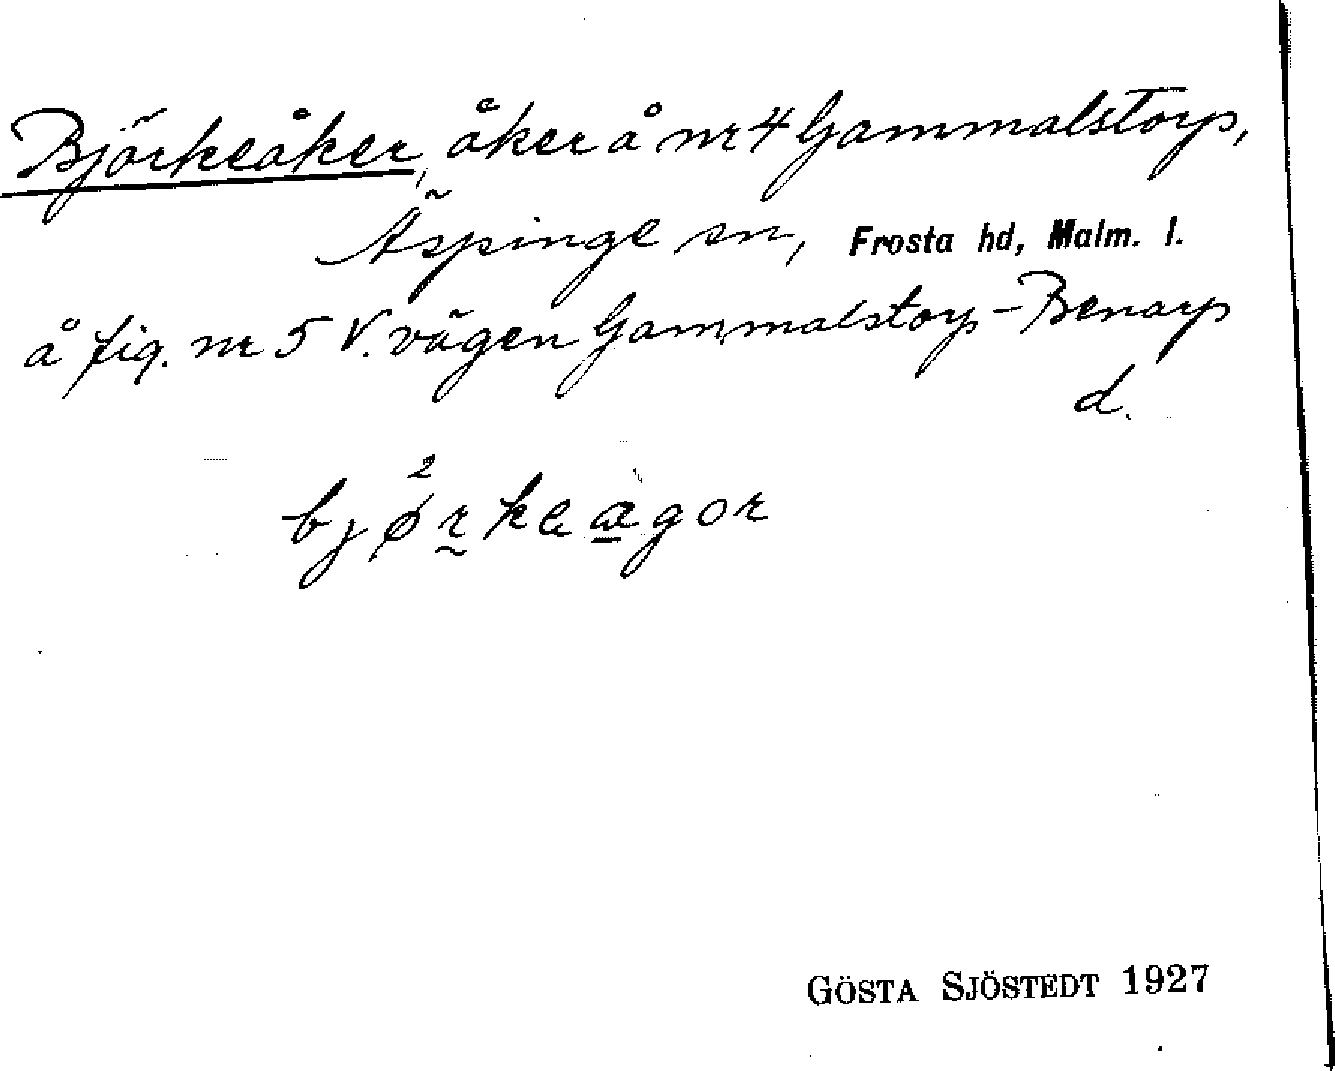 Björkeåker, åker å nr 4 Gammalstorp,
Äspinge sn, Frosta hd, Malm. l.
å fig. nr 5 V. vägen Gammalstorp–Benarp
d.
bjø²rkeàgor
GÖSTA SJÖSTEDT 1927